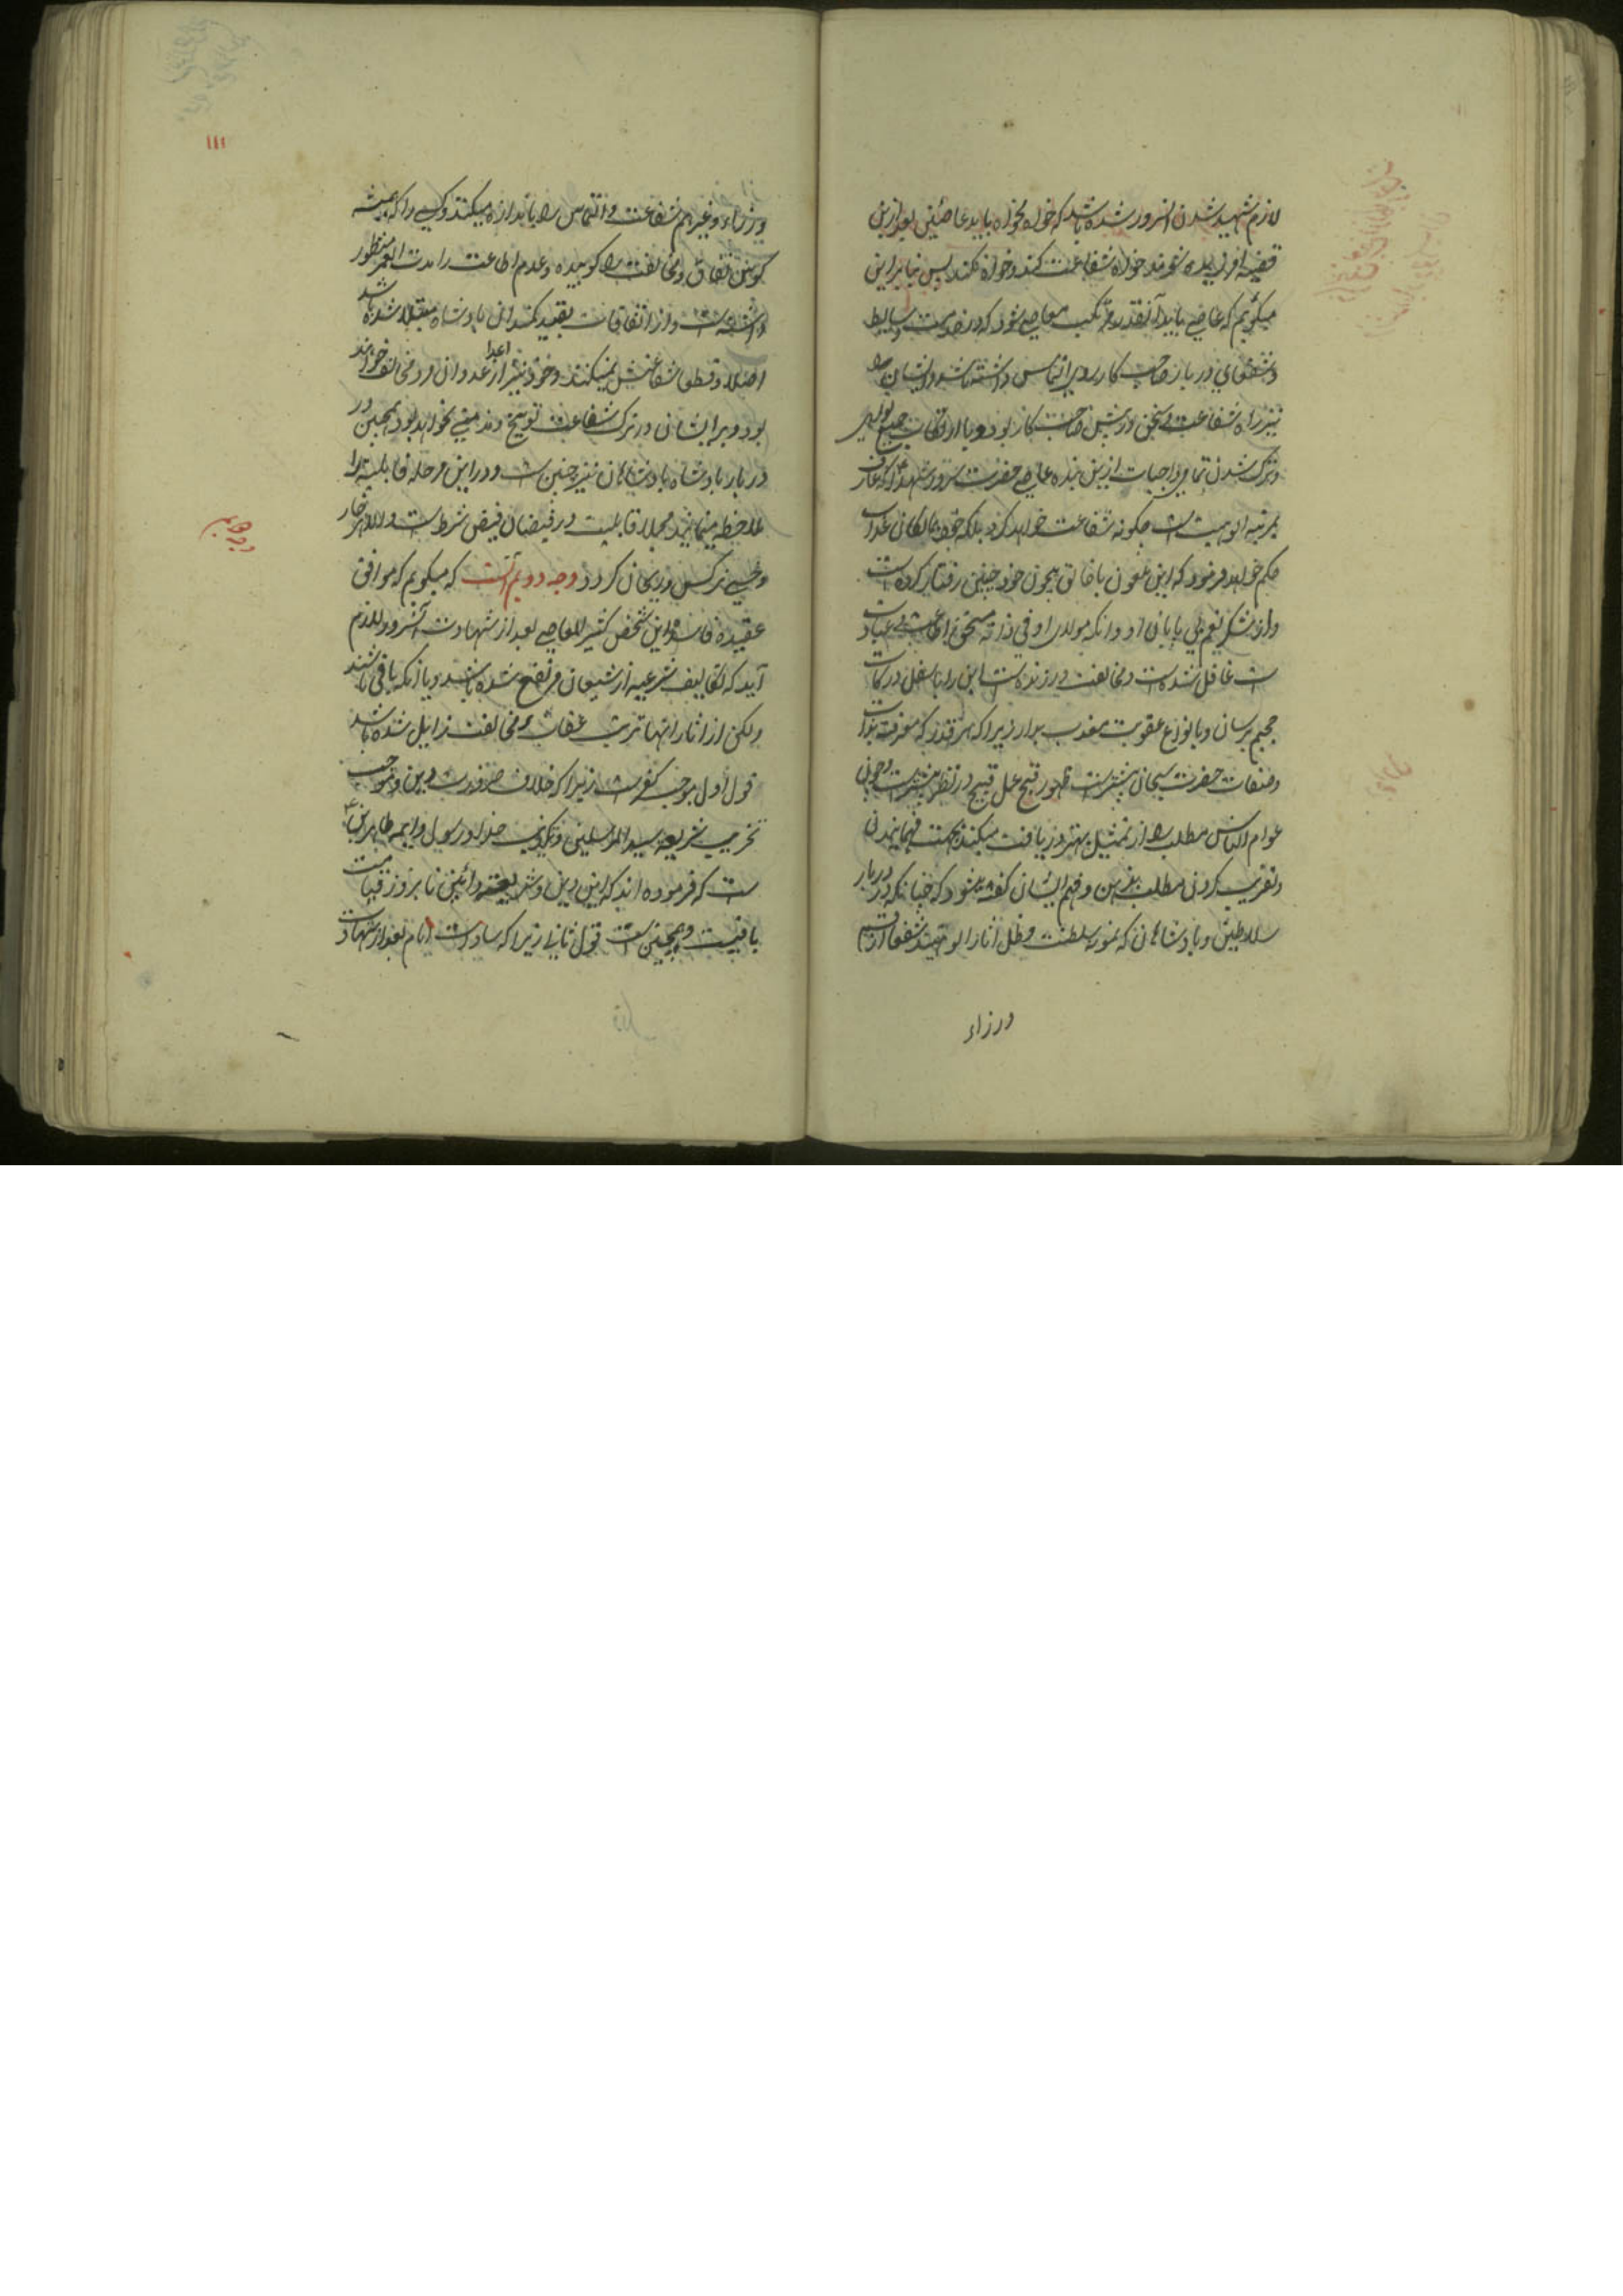 لازم شهید شدن انسرور شده باشد که خواه نخواه باید عاصئین بعد ازین
قضیه افریده شوند خواه شفاعت کند و خواه نکند پس بنابراین
میگوئیم که عاصی باید آنقدر مرتکب معاصی شود که در خدمت وسایط
و شفعای دربار صاحب کار روی التماس داشته باشد و ایشان را
نیز راه شفاعت و سخن در پیش صاحب کار بود و با ارتکاب جمیع
و ترک شدن تمامی واجبات ازین بنده عاصی حضرت سرور شهدا که عارف
بمرتبه الوهیت است چگونه شفاعت خواهد کرد بلکه خود بمالکان عذاب
حکم خواهد فرمود که این ملعون با خالق بیچون خود چنین رفتار کرده است
و از شکر نعم بی پایان او و انکه مولای او فی ذاته مستحق اطاعت و عبادت
است غافل شده است و مخالفت ورزیده است این را باسفل درکات
جحیم برسان و بانواع عقوبت معذب بدار زیرا که هر قدر که معرفت بذات
و صفات حضرت سبحان بیشترست ظهور قبح عمل قبیح در نظر بیشترست و چون
عوام الناس مطلب را از تمثیل بهتر دریافت میکنند بجهت فهمانیدن
و تقریب کردن مطلب بذهن و فهم ایشان گفته میشود که چنانکه در دربار
سلاطین و بادشاهان که نمونه سلطنت و ظل آثار الوهیتند شفعا از
وزراء
۱۱۱
وزراء و غیرهم شفاعت و التماس را باندازه میکنند و کسی را که همیشه
کوس نفاق و مخالفت را کوبیده و عدم اطاعت را مدت العمر منظور
داشته است و از اتفاقات بقید کمند ان بادشاه مبتلا شده باشد
اصلا و قطعا شفاعتش نمیکنند و خود نیز از اعدا عدوان و مخالف خواهند
بود و بر ایشان در ترک شفاعت توبیخ و مذمتی نخواهد بود همچنین در
دربار بادشاه بادشاهان نیز چنین است و در این مرحله قابلیة را
ملاحظه مینمایند و مجملا قابلیت در فیضان فیض شرط است والا هر خار
و خسی نرگس و ریحان گردد وجه دویم آنست که میگویم که موافق
عقیده فاسده این شخص کثیر المعاصی بعد از شهادت آنسرور لازم
آید که تکالیف شرعیه از شیعیان مرتفع شده باشد و یا انکه باقی باشند
ولکن از اثار انها ترتب عقاب و مخالفت زایل شده باشد
قول اول موجب کفرست زیرا که خلاف ضرورت دین و موجب
تخریب شریعه سید المرسلین و تکذیب خدا و رسول و ایمه طاهرین
است که فرموده اند که این دین و شریعت و آئین تا بروز قیامت
باقیست و همچنین است قول ثانی زیرا که سادات انام بعد از شهادت